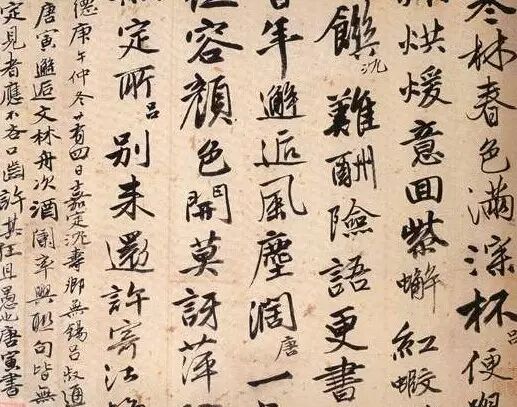 冬林春色滿深杯呂便
烘煖意回紫蟹紅蝦
饌沈難酬險語更書
年邂逅風塵濶唐一
容顏色開莫訝萍
定所呂別來還許寄江
德庚午仲冬廿有四日嘉定沈壽卿無錫呂叔通
唐寅邂逅文林舟次酒闌率興聯句皆無
定見者應不吝口齒許其狂且愚也唐寅書